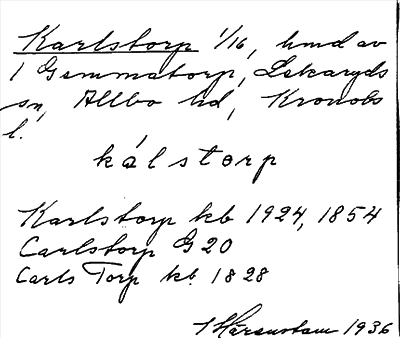 Karlstorp 1/16, hmd av
1 Gemmatorp, Lekaryds
sn, Allbo hd, Kronobs
l.
kálstorp
Karlstorp kb 1924, 1854
Carlstorp G 20
Carls Torp kb. 1828
Härenstam 1936